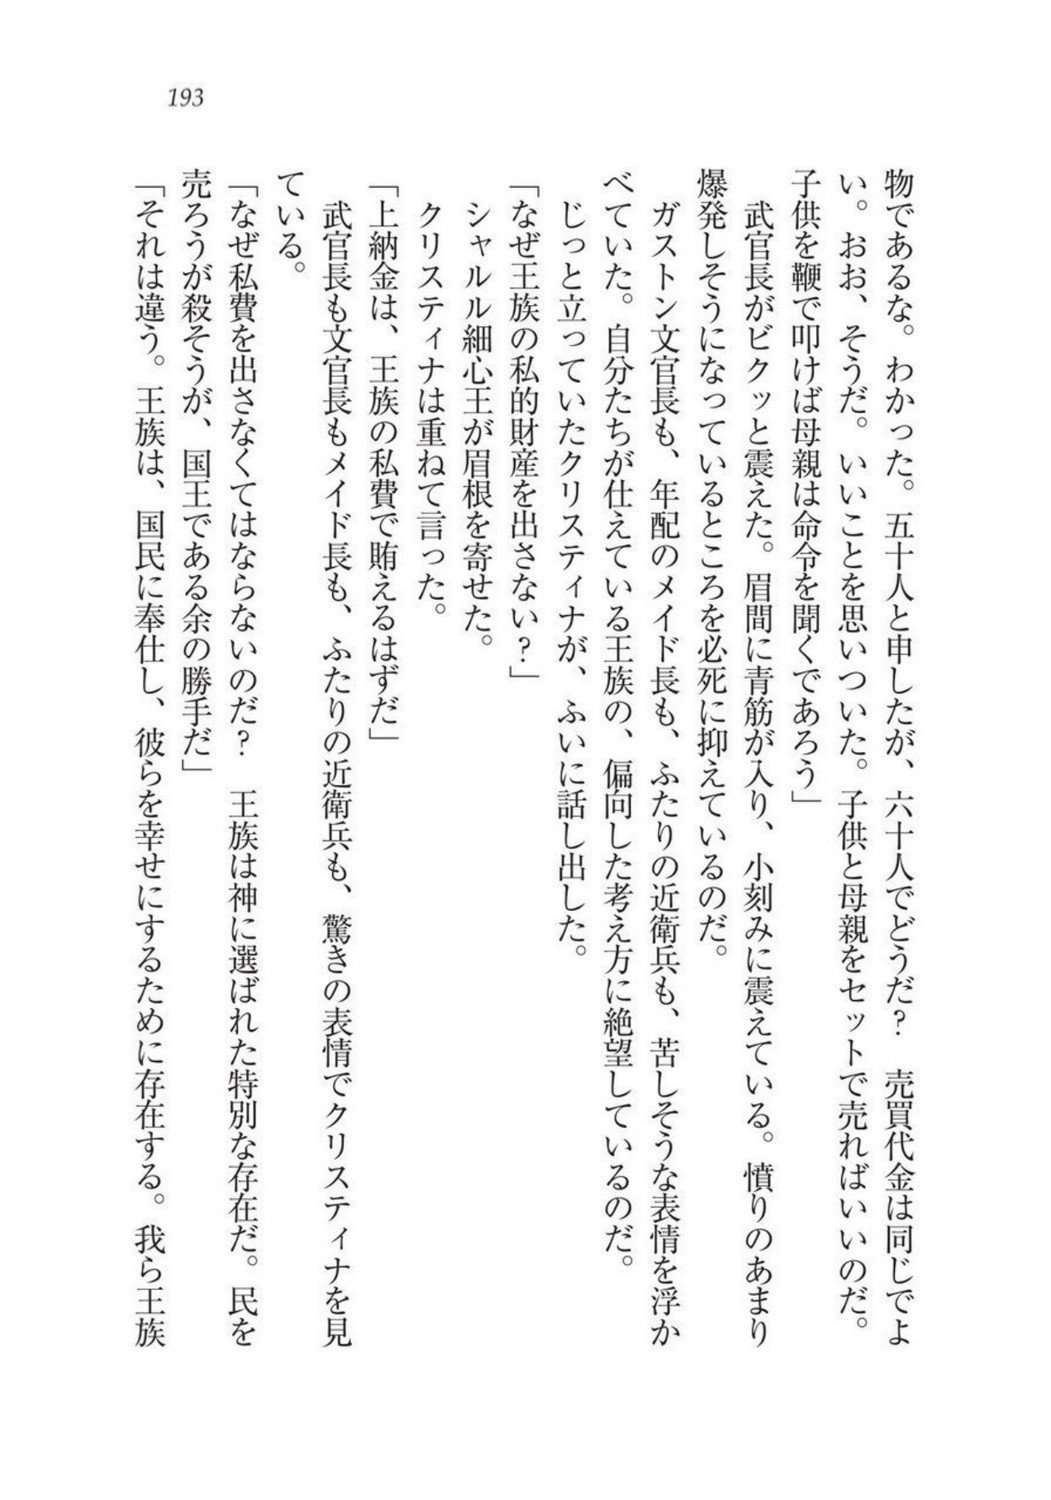 193
物であるな。わかった。五十人と申したが、六十人でどうだ？　売買代金は同じでよ
い。おお、そうだ。いいことを思いついた。子供と母親をセットで売ればいいのだ。
子供を鞭で叩けば母親は命令を聞くであろう」
　武官長がビクッと震えた。眉間に青筋が入り、小刻みに震えている。憤りのあまり
爆発しそうになっているところを必死に抑えているのだ。
　ガストン文官長も、年配のメイド長も、ふたりの近衛兵も、苦しそうな表情を浮か
べていた。自分たちが仕えている王族の、偏向した考え方に絶望しているのだ。
　じっと立っていたクリスティナが、ふいに話し出した。
「なぜ王族の私的財産を出さない？」
　シャルル細心王が眉根を寄せた。
　クリスティナは重ねて言った。
「上納金は、王族の私費で賄えるはずだ」
　武官長も文官長もメイド長も、ふたりの近衛兵も、驚きの表情でクリスティナを見
ている。
「なぜ私費を出さなくてはならないのだ？　王族は神に選ばれた特別な存在だ。民を
売ろうが殺そうが、国王である余の勝手だ」
「それは違う。王族は、国民に奉仕し、彼らを幸せにするために存在する。我ら王族